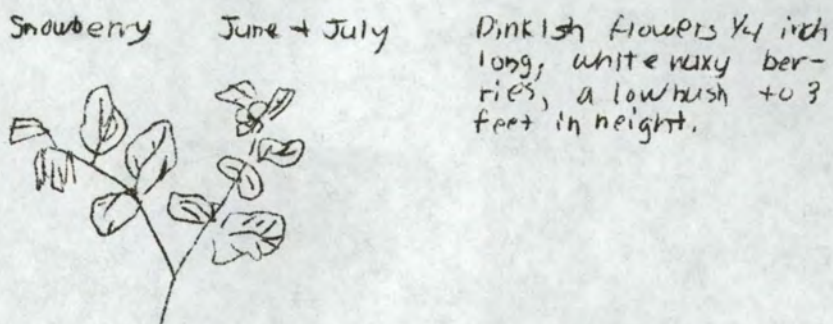 Snowberry June + July
Pinkish flowers 1/4 inch
long, white waxy ber-
ries, a low bush to 3
feet in height.